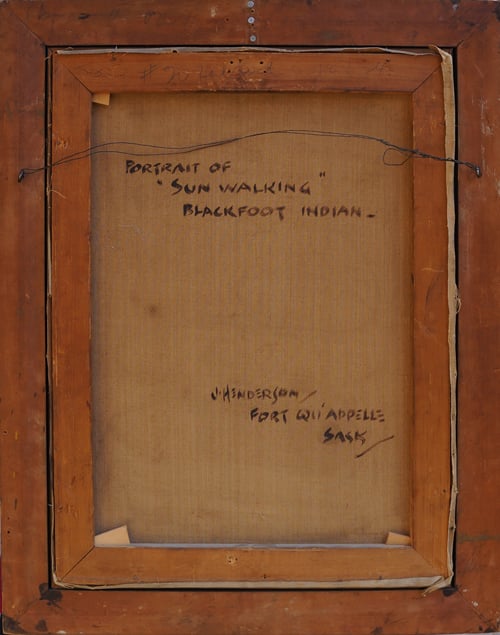 PORTRAIT OF
"SUN WALKING"
BLACKFOOT INDIAN -
J. HENDERSON /
FORT QU'APPELLE
SASK /